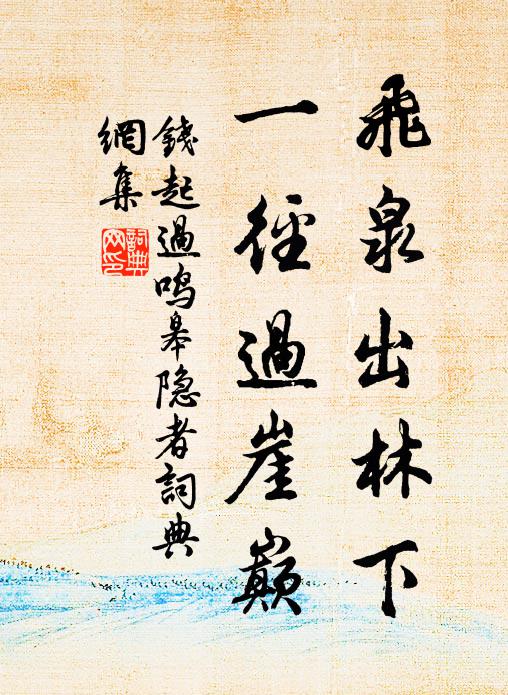 飛泉出林下
一徑過崖巔
錢起過鸣皋隐者詞典
網集
詞典
網印